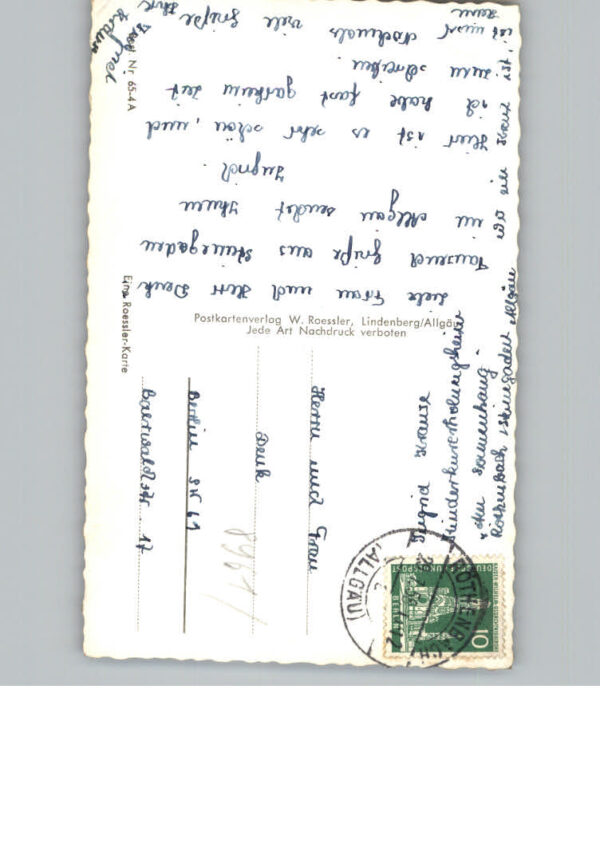 Liebe Frau und Herr Denk
Tausend Grüße aus Steuegaden
im Allgäu sendet Ihnen
Ingrid.
Hier ist es sehr schön, und
ich habe fast garkein Zeit
zum schreiben.
Nochmals viele Grüße Ihre
Ingrid
Best. Nr 65-4 A
Eine Roessler-Karte
Postkartenverlag W. Roessler, Lindenberg/Allgäu
Jede Art Nachdruck verboten
Ingrid Krause
Kinderkurerholungsheim
"Am Sonnenhang"
Röthenbach, Steuegaden Allgäu
Herrn und Frau
Denk
Berlin SW 61
Baerwaldstr 17
8961/
RÖTHENBACH
(ALLGÄU)
DEUTSCHE BUNDESPOST
BERLIN
10